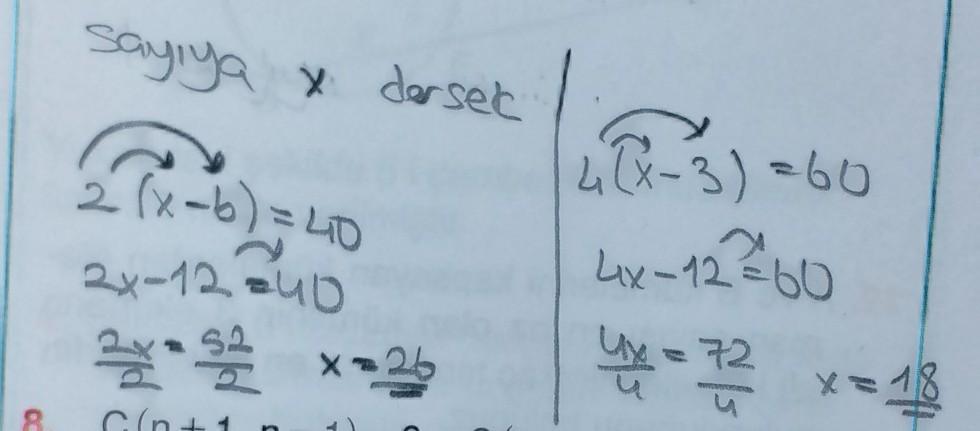 sayıya x dersek
2(x-6)=40
2x-12=40
2x/2=52/2 x=26
4(x-3)=60
4x-12=60
4x/4=72/4 x=18
8